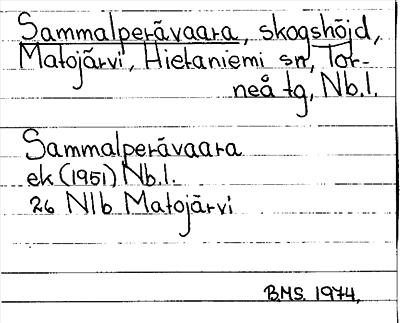 Sammalperävaara, skogshöjd,
Matojärvi, Hietaniemi sn, Tor-
neå tg, Nb.l.
Sammalperävaara
ek (1951) Nb.l.
26 Nlb Matojärvi
B.M.S. 1974.